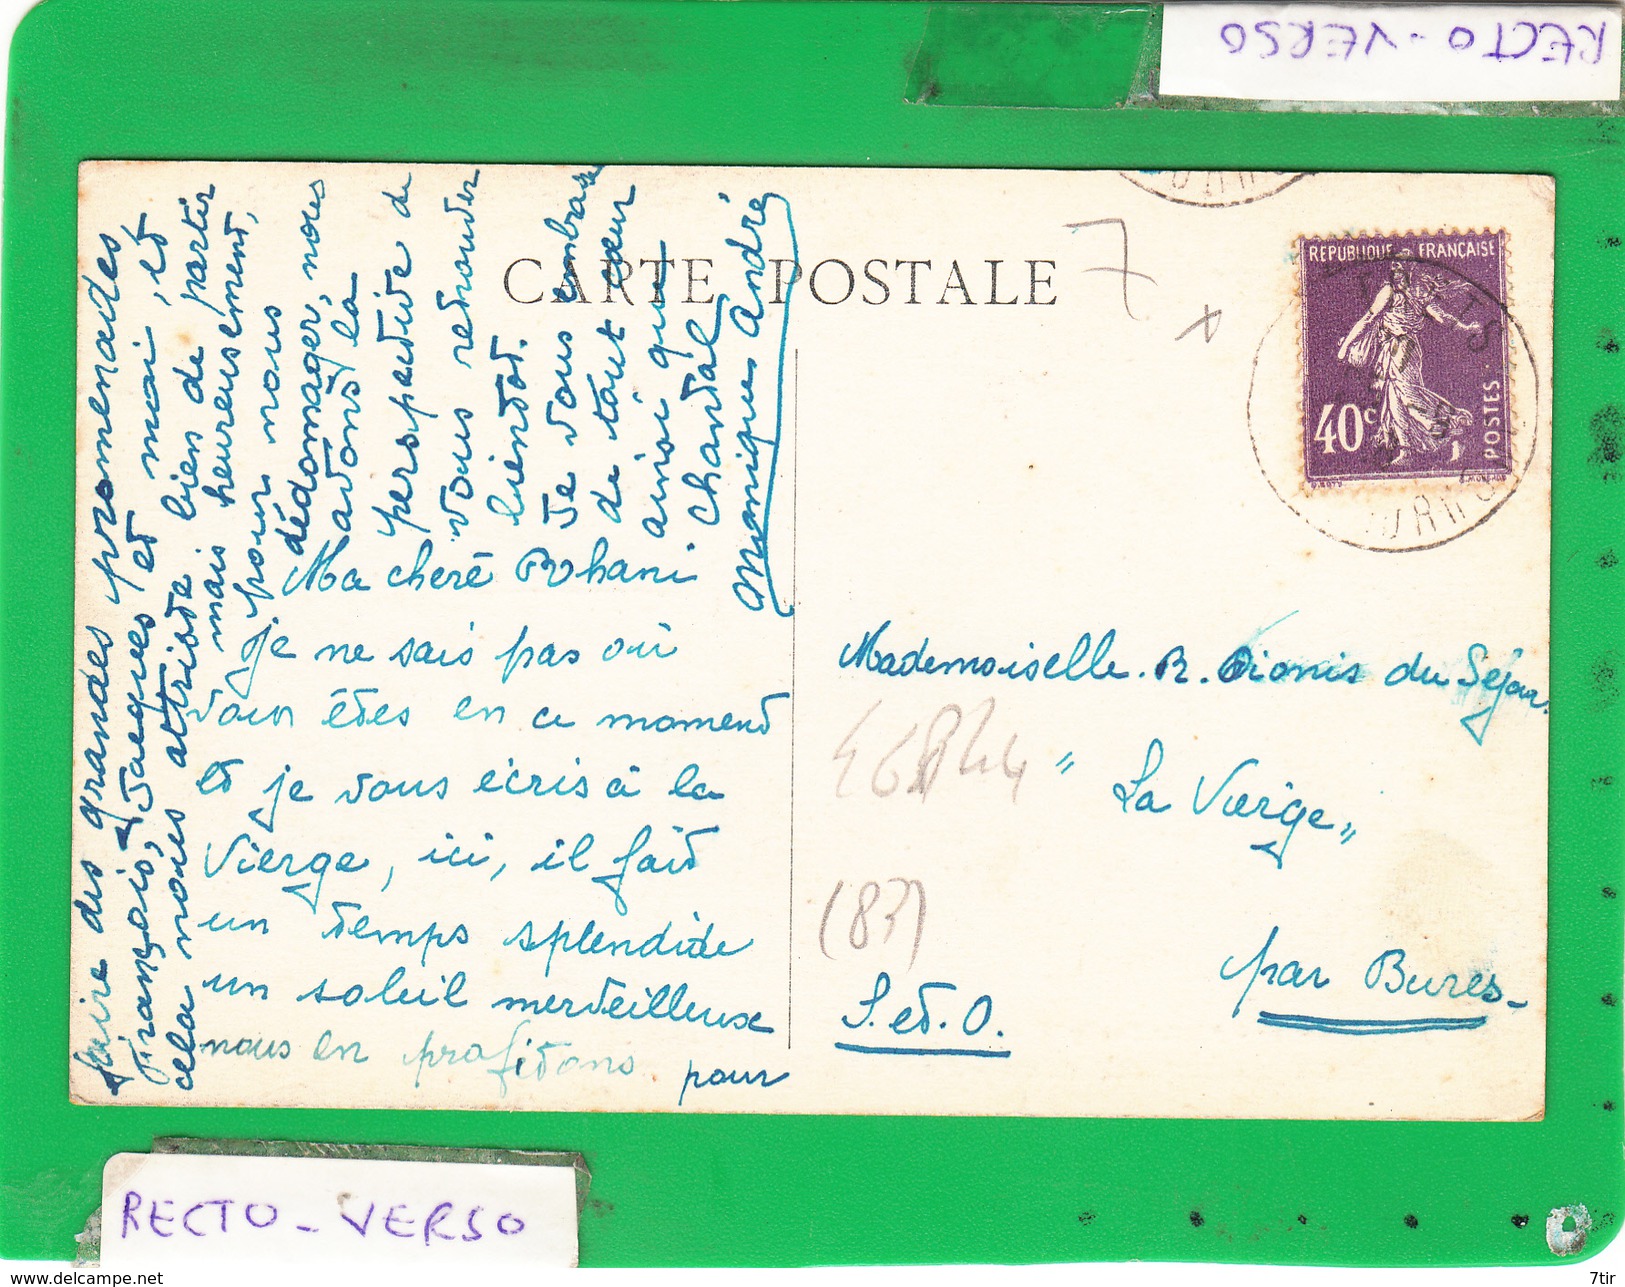 RECTO - VERSO
CARTE POSTALE
7
REPUBLIQUE FRANÇAISE
40c
POSTES
Ma chère Rohani
je ne sais pas où
vous êtes en ce moment
et je vous écris à la
Vierge, ici, il fait
un temps splendide
un soleil merveilleux
nous en profitons pour
faire des grandes promenades
François, Jacques et moi, et
cela nous attriste bien de partir
mais heureusement,
pour nous
dédomager, nous
avons la
perspective de
vous retrouver
bientôt.
Je vous embrasse
de tout cœur
ainsi que
Chantal
Monique André
Mademoiselle. R. Dionis du Séjour.
"La Vierge"
par Bures-
S. et. O.
(83)
RECTO - VERSO
www.delcampe.net
7tir